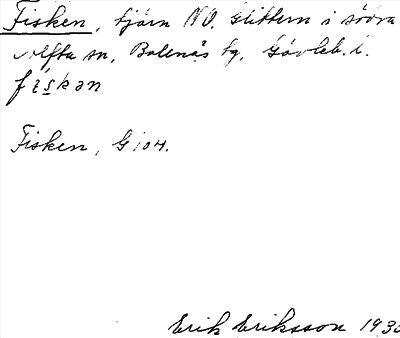 Fisken, tjärn NO. Glittern i södra
Alfta sn, Bolenäs by, Gävleb. l.
fiskan
Fisken, G 104.
Erik Eriksson 193